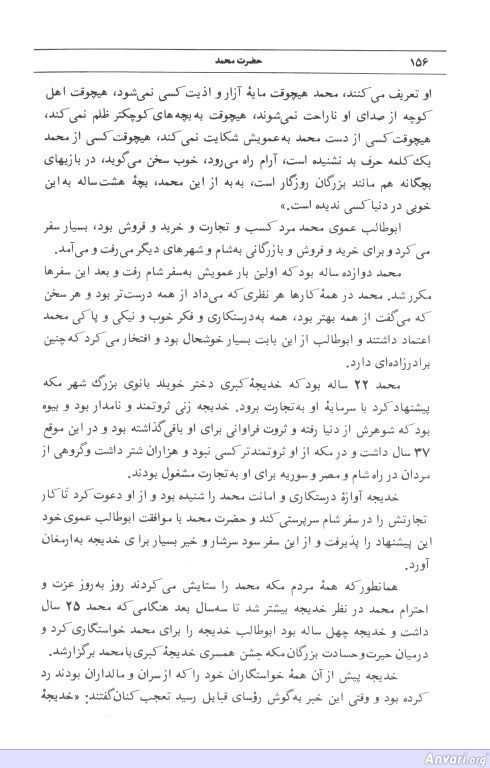 ۱۵۶ حضرت محمد
او تعریف می‌کنند، محمد هیچوقت مایهٔ آزار و اذیت کسی نمی‌شود، هیچوقت اهل
کوچه از صدای او ناراحت نمی‌شوند، هیچوقت به بچه‌های کوچکتر ظلم نمی‌کند،
هیچوقت کسی از دست محمد به‌عمویش شکایت نمی‌کند، هیچوقت کسی از محمد
یک کلمه حرف بد نشنیده است، آرام راه می‌رود، خوب سخن می‌گوید، در بازیهای
بچگانه هم مانند بزرگان روزگار است، به‌به از این محمد، بچهٔ هشت‌ساله به‌این
خوبی در دنیا کسی ندیده است.»
ابوطالب عموی محمد مرد کسب و تجارت و خرید و فروش بود، بسیار سفر
می‌کرد و برای خرید و فروش و بازرگانی به‌شام و شهرهای دیگر می‌رفت و می‌آمد.
محمد دوازده ساله بود که اولین بار عمویش به‌سفر شام رفت و بعد این سفرها
مکرر شد. محمد در همهٔ کارها هر نظری که می‌داد از همه درست‌تر بود و هر سخن
که می‌گفت از همه بهتر بود، همه به‌درستکاری و فکر خوب و نیکی و پاکی محمد
اعتماد داشتند و ابوطالب از این بابت بسیار خوشحال بود و افتخار می‌کرد که چنین
برادرزاده‌ای دارد.
محمد ۲۲ ساله بود که خدیجهٔ کبری دختر خویلد بانوی بزرگ شهر مکه
پیشنهاد کرد با سرمایهٔ او به‌تجارت برود. خدیجه زنی ثروتمند و نامدار بود و بیوه
بود که شوهرش از دنیا رفته و ثروت فراوانی برای او باقی‌گذاشته بود و در این موقع
۳۷ سال داشت و در مکه از او ثروتمندتر کسی نبود و هزاران شتر داشت و گروهی از
مردان در راه شام و مصر و سوریه برای او به‌تجارت مشغول بودند.
خدیجه آوازهٔ درستکاری و امانت محمد را شنیده بود و از او دعوت کرد تا کار
تجارتش را در سفر شام سرپرستی کند و حضرت محمد با موافقت ابوطالب عموی خود
این پیشنهاد را پذیرفت و از این سفر سود سرشار و خیر بسیار برای خدیجه به‌ارمغان
آورد.
همانطور که همهٔ مردم مکه محمد را ستایش می‌کردند روز به‌روز عزت و
احترام محمد در نظر خدیجه بیشتر شد تا سه‌سال بعد هنگامی که محمد ۲۵ سال
داشت و خدیجه چهل ساله بود ابوطالب خدیجه را برای محمد خواستگاری کرد و
درمیان حیرت و حسادت بزرگان مکه جشن همسری خدیجهٔ کبری با محمد برگزار شد.
خدیجه پیش از آن همهٔ خواستگاران خود را که از سران و مالداران بودند رد
کرده بود و وقتی این خبر به‌گوش رؤسای قبایل رسید تعجب کنان گفتند: «خدیجهٔ
Anvari.org